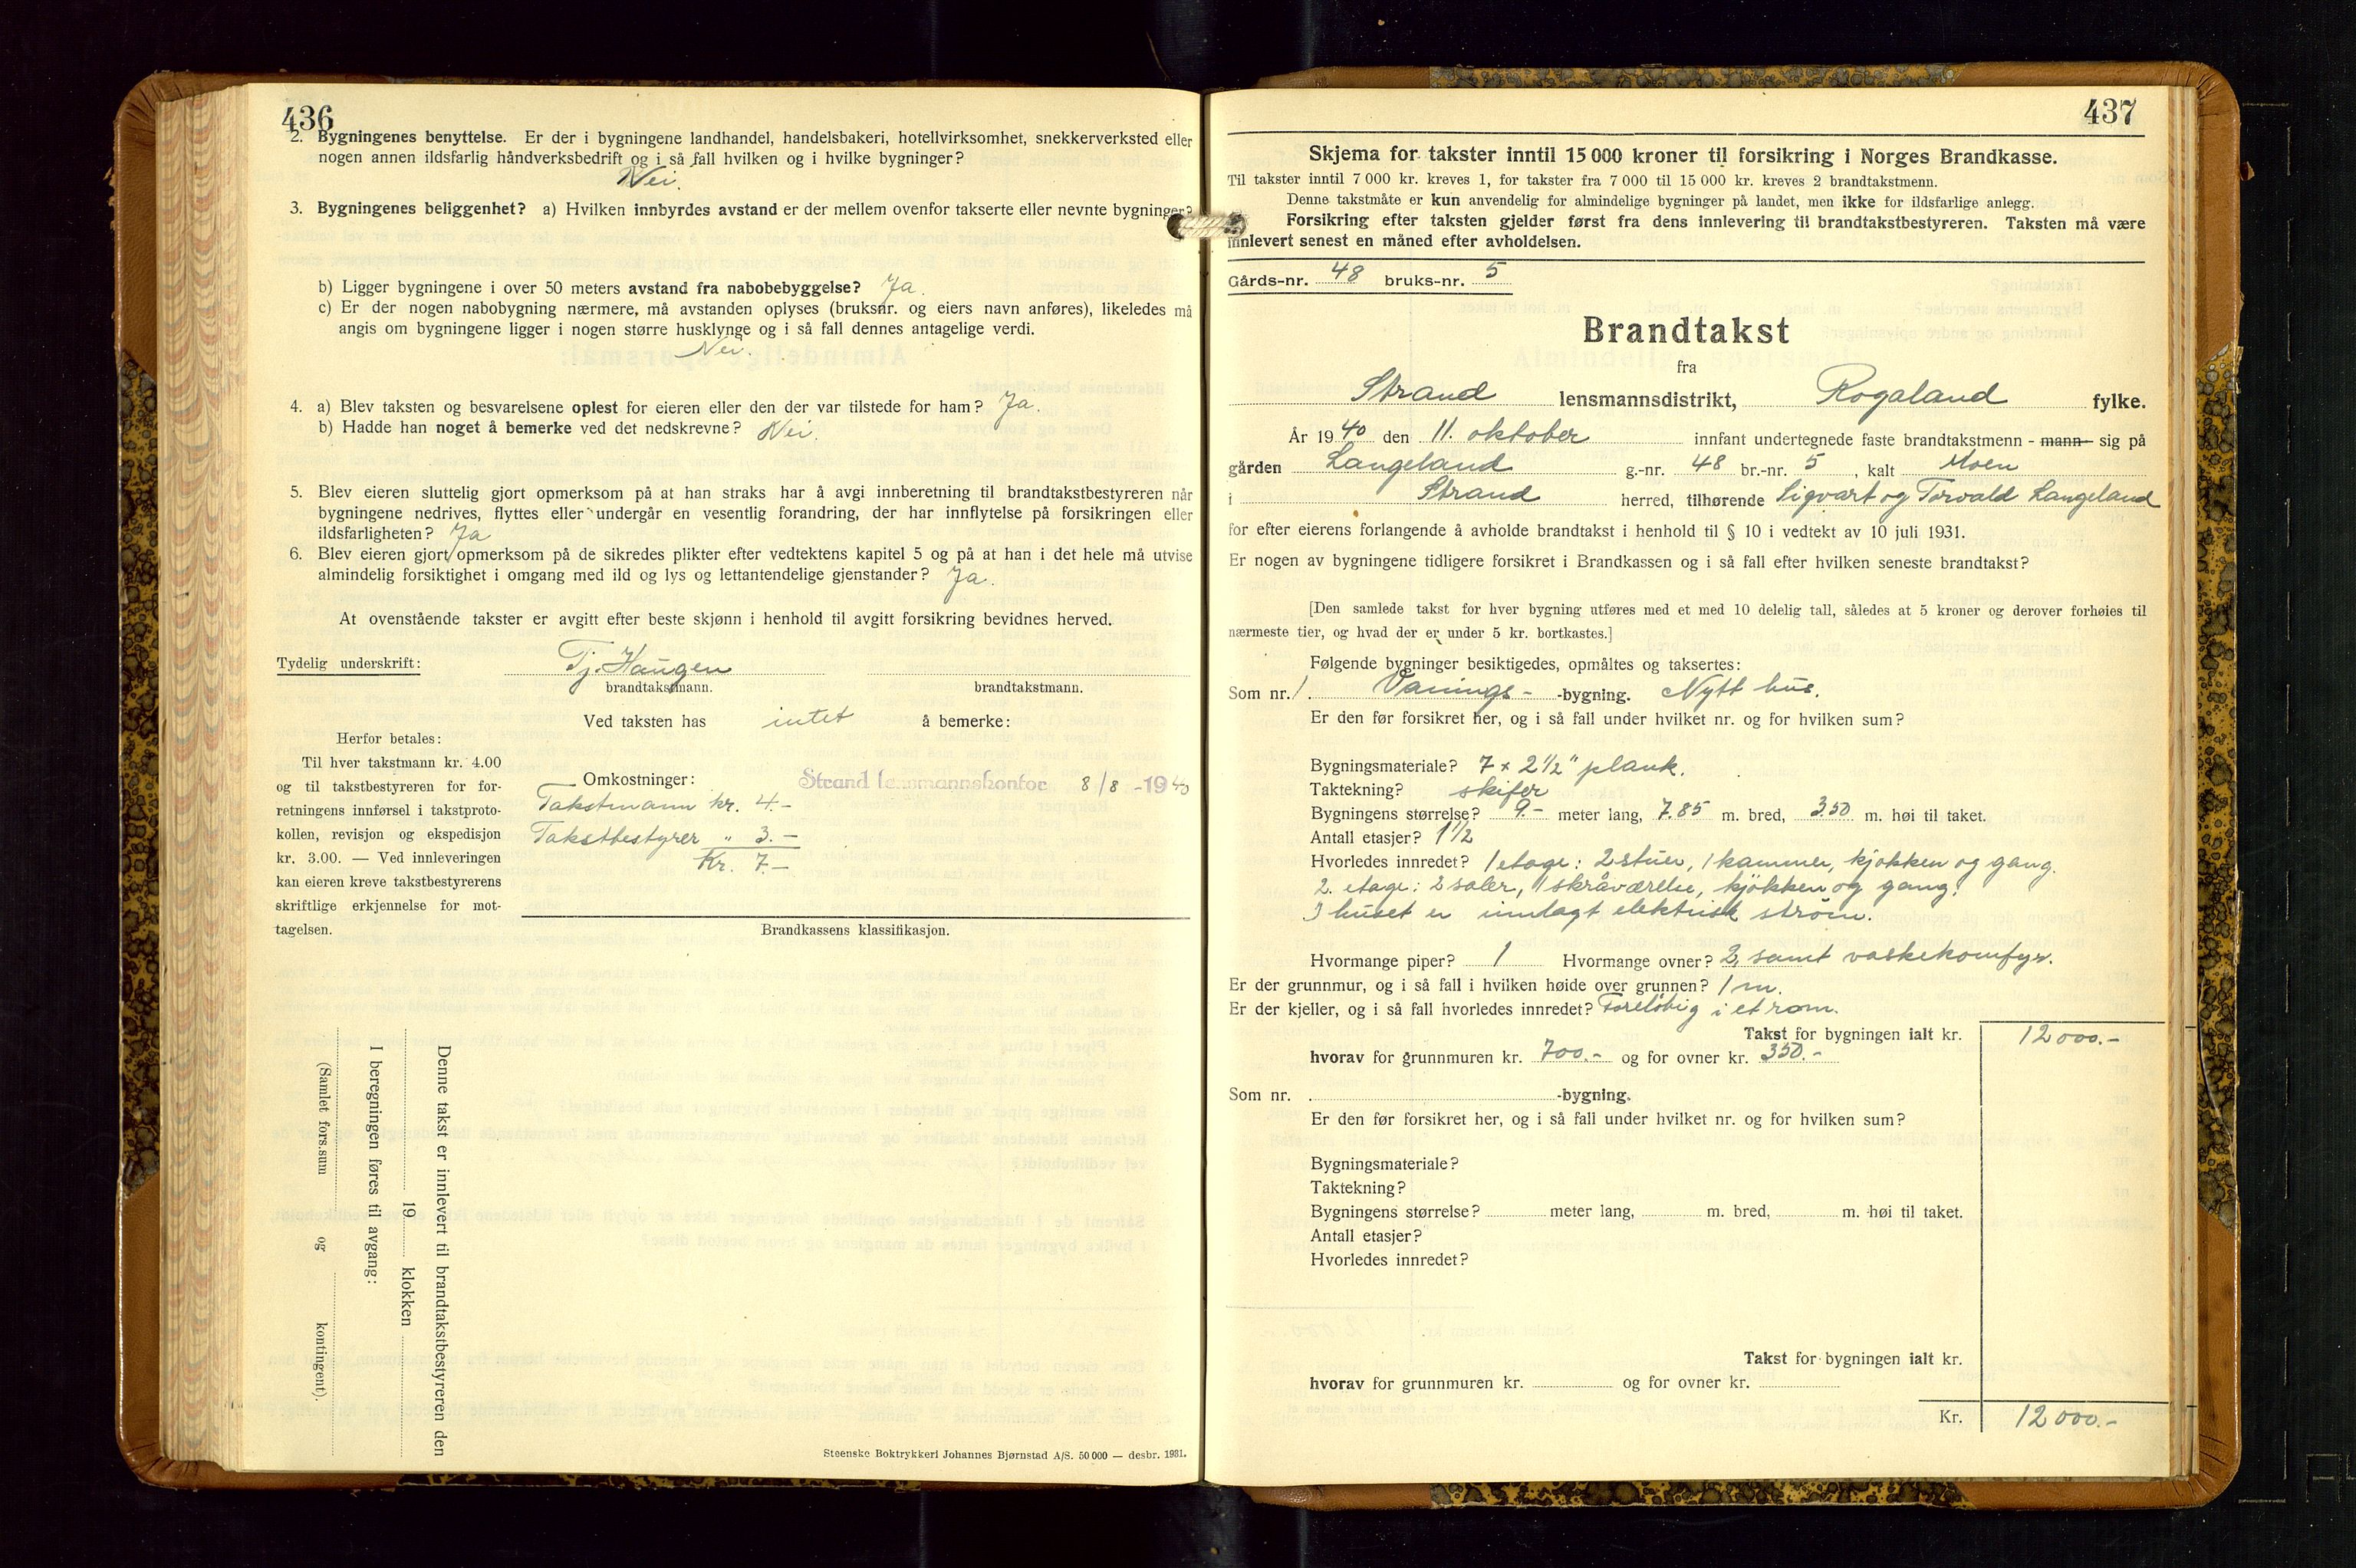 436
2. Bygningenes benyttelse. Er der i bygningene landhandel, handelsbakeri, hotellvirksomhet, snekkerverksted eller
nogen annen ildsfarlig håndverksbedrift og i så fall hvilken og i hvilke bygninger?
Nei.
3. Bygningenes beliggenhet? a) Hvilken innbyrdes avstand er der mellem ovenfor takserte eller nevnte bygninger?
b) Ligger bygningene i over 50 meters avstand fra nabobebyggelse? Ja.
c) Er der nogen nabobygning nærmere, må avstanden oplyses (bruksnr. og eiers navn anføres), likeledes må
angis om bygningene ligger i nogen større husklynge og i så fall dennes antagelige verdi.
Nei.
4. a) Blev taksten og besvarelsene oplest for eieren eller den der var tilstede for ham? Ja.
b) Hadde han noget å bemerke ved det nedskrevne? Nei.
5. Blev eieren sluttelig gjort opmerksom på at han straks har å avgi innberetning til brandtakstbestyreren når
bygningene nedrives, flyttes eller undergår en vesentlig forandring, der har innflytelse på forsikringen eller
ildsfarligheten? Ja
6. Blev eieren gjort opmerksom på de sikredes plikter efter vedtektens kapitel 5 og på at han i det hele må utvise
almindelig forsiktighet i omgang med ild og lys og lettantendelige gjenstander? Ja.
At ovenstående takster er avgitt efter beste skjønn i henhold til avgitt forsikring bevidnes herved.
Tydelig underskrift: Tj. Haugen
brandtakstmann. brandtakstmann.
Ved taksten has intet å bemerke:
Herfor betales:
Til hver takstmann kr. 4.00
og til takstbestyreren for for-
retningens innførsel i takstproto-
kollen, revisjon og ekspedisjon
kr. 3.00. — Ved innleveringen
kan eieren kreve takstbestyrerens
skriftlige erkjennelse for mot-
tagelsen.
Omkostninger: Strand lensmannskontor 8/8 -1940
Takstmann kr. 4.-
Takstbestyrer " 3.-
Kr. 7.-
Brandkassens klassifikasjon.
Denne takst er innlevert til brandtakstbestyreren den
19 klokken
I beregningen føres til avgang:
(Samlet fors.sum og kontingent).
Steenske Boktrykkeri Johannes Bjørnstad A/S. 50 000 — desbr. 1931.
437
Skjema for takster inntil 15 000 kroner til forsikring i Norges Brandkasse.
Til takster inntil 7 000 kr. kreves 1, for takster fra 7 000 til 15 000 kr. kreves 2 brandtakstmenn.
Denne takstmåte er kun anvendelig for almindelige bygninger på landet, men ikke for ildsfarlige anlegg.
Forsikring efter taksten gjelder først fra dens innlevering til brandtakstbestyreren. Taksten må være
innlevert senest en måned efter avholdelsen.
Gårds-nr. 48 bruks-nr. 5
Brandtakst
fra
Strand lensmannsdistrikt, Rogaland fylke.
År 1940 den 11. oktober innfant undertegnede faste brandtakstmenn - mann- sig på
gården Langeland g.-nr. 48 br.-nr. 5, kalt Moen
i Strand herred, tilhørende Sigvart og Torvald Langeland
for efter eierens forlangende å avholde brandtakst i henhold til § 10 i vedtekt av 10 juli 1931.
Er nogen av bygningene tidligere forsikret i Brandkassen og i så fall efter hvilken seneste brandtakst?
[Den samlede takst for hver bygning utføres med et med 10 delelig tall, således at 5 kroner og derover forhøies til
nærmeste tier, og hvad der er under 5 kr. bortkastes.]
Følgende bygninger besiktigedes, opmåltes og taksertes:
Som nr. 1 Vanings- -bygning. Nytt hus.
Er den før forsikret her, og i så fall under hvilket nr. og for hvilken sum?
Bygningsmateriale? 7 x 2 1/2" plank.
Taktekning? skifer
Bygningens størrelse? 9.- meter lang, 7.85 m. bred, 3.50 m. høi til taket.
Antall etasjer? 1 1/2
Hvorledes innredet? 1 etage: 2 stuer, 1 kammer, kjøkken og gang.
2. etage: 2 saler, 1 skråværelse, kjøkken og gang.
I huset er innlagt elektrisk strøm.
Hvormange piper? 1 Hvormange ovner? 2, samt vaskekomfyr.
Er der grunnmur, og i så fall i hvilken høide over grunnen? 1 m.
Er der kjeller, og i så fall hvorledes innredet? Foreløbig i et rom.
Takst for bygningen ialt kr. 12000.-
hvorav for grunnmuren kr. 700.- og for ovner kr. 350.-
Som nr. -bygning.
Er den før forsikret her, og i så fall under hvilket nr. og for hvilken sum?
Bygningsmateriale?
Taktekning?
Bygningens størrelse? meter lang, m. bred, m. høi til taket.
Antall etasjer?
Hvorledes innredet?
Takst for bygningen ialt kr.
hvorav for grunnmuren kr. og for ovner kr.
Kr. 12000.-